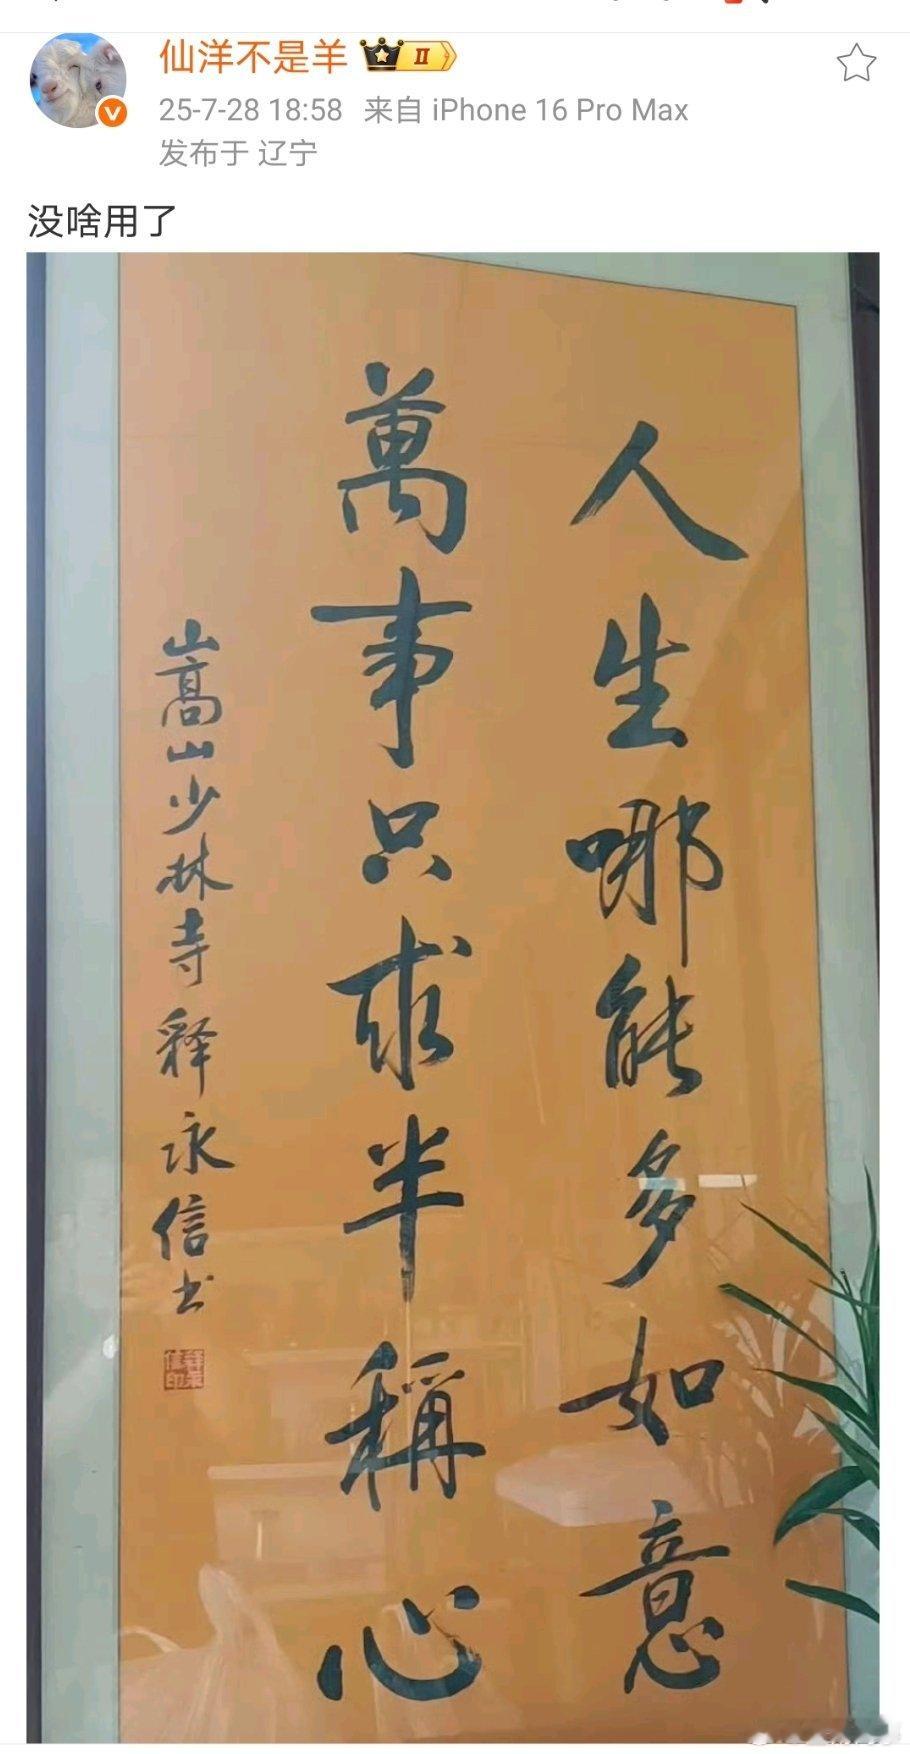 仙洋不是羊 II
25-7-28 18:58 来自 iPhone 16 Pro Max
发布于 辽宁
没啥用了
人生哪能多如意
萬事只求半稱心
嵩山少林寺释永信书